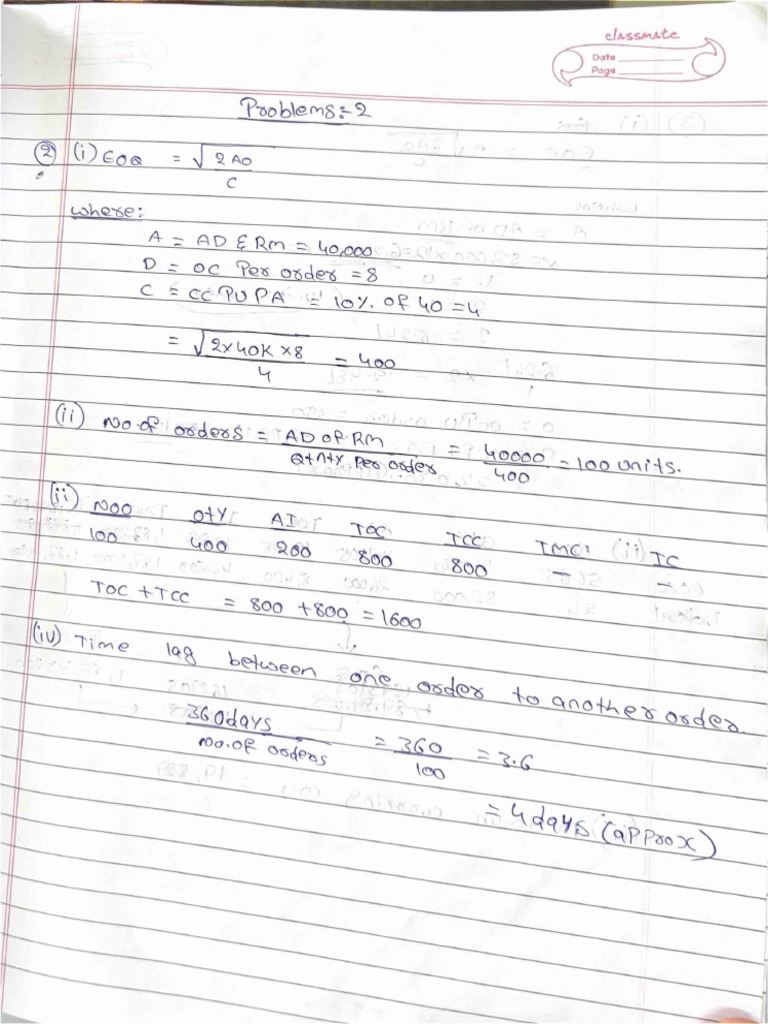 classmate
Date
Page
Problems:- 2
② (i) EOQ = √2AO
C
where:
A = AD & RM = 40,000
D = OC Per order = 8
C = CC PU PA = 10% of 40 = 4
= √2×40K×8 = 400
4
(ii) No. of orders = AD of RM = 40000 = 100 units.
Qtnty Per order 400
(ii) NOO QTY AI TOC TCC TMC (ii) TC
100 400 200 800 800 — —
TOC + TCC = 800 + 800 = 1600
(iv) Time lag between one order to another order.
360days = 360 = 3.6
No. of orders 100
= 4 days (approx)